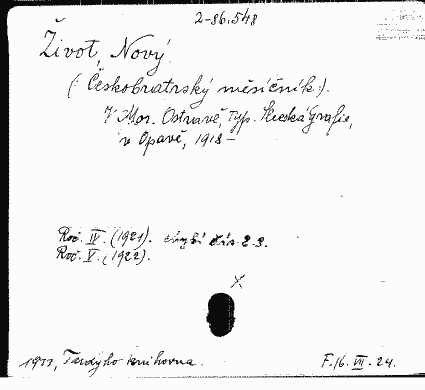 2-86.548
Život, Nový.
(: Českobratrský měsíčník:).
V Mor. Ostravě, Typ. Slezská Grafie,
v Opavě, 1918 –
Roč. IV. (1921). chybí čís. 2. 3.
Roč. V. (1922).
X
knihovna.
F. 16. VII. 24.